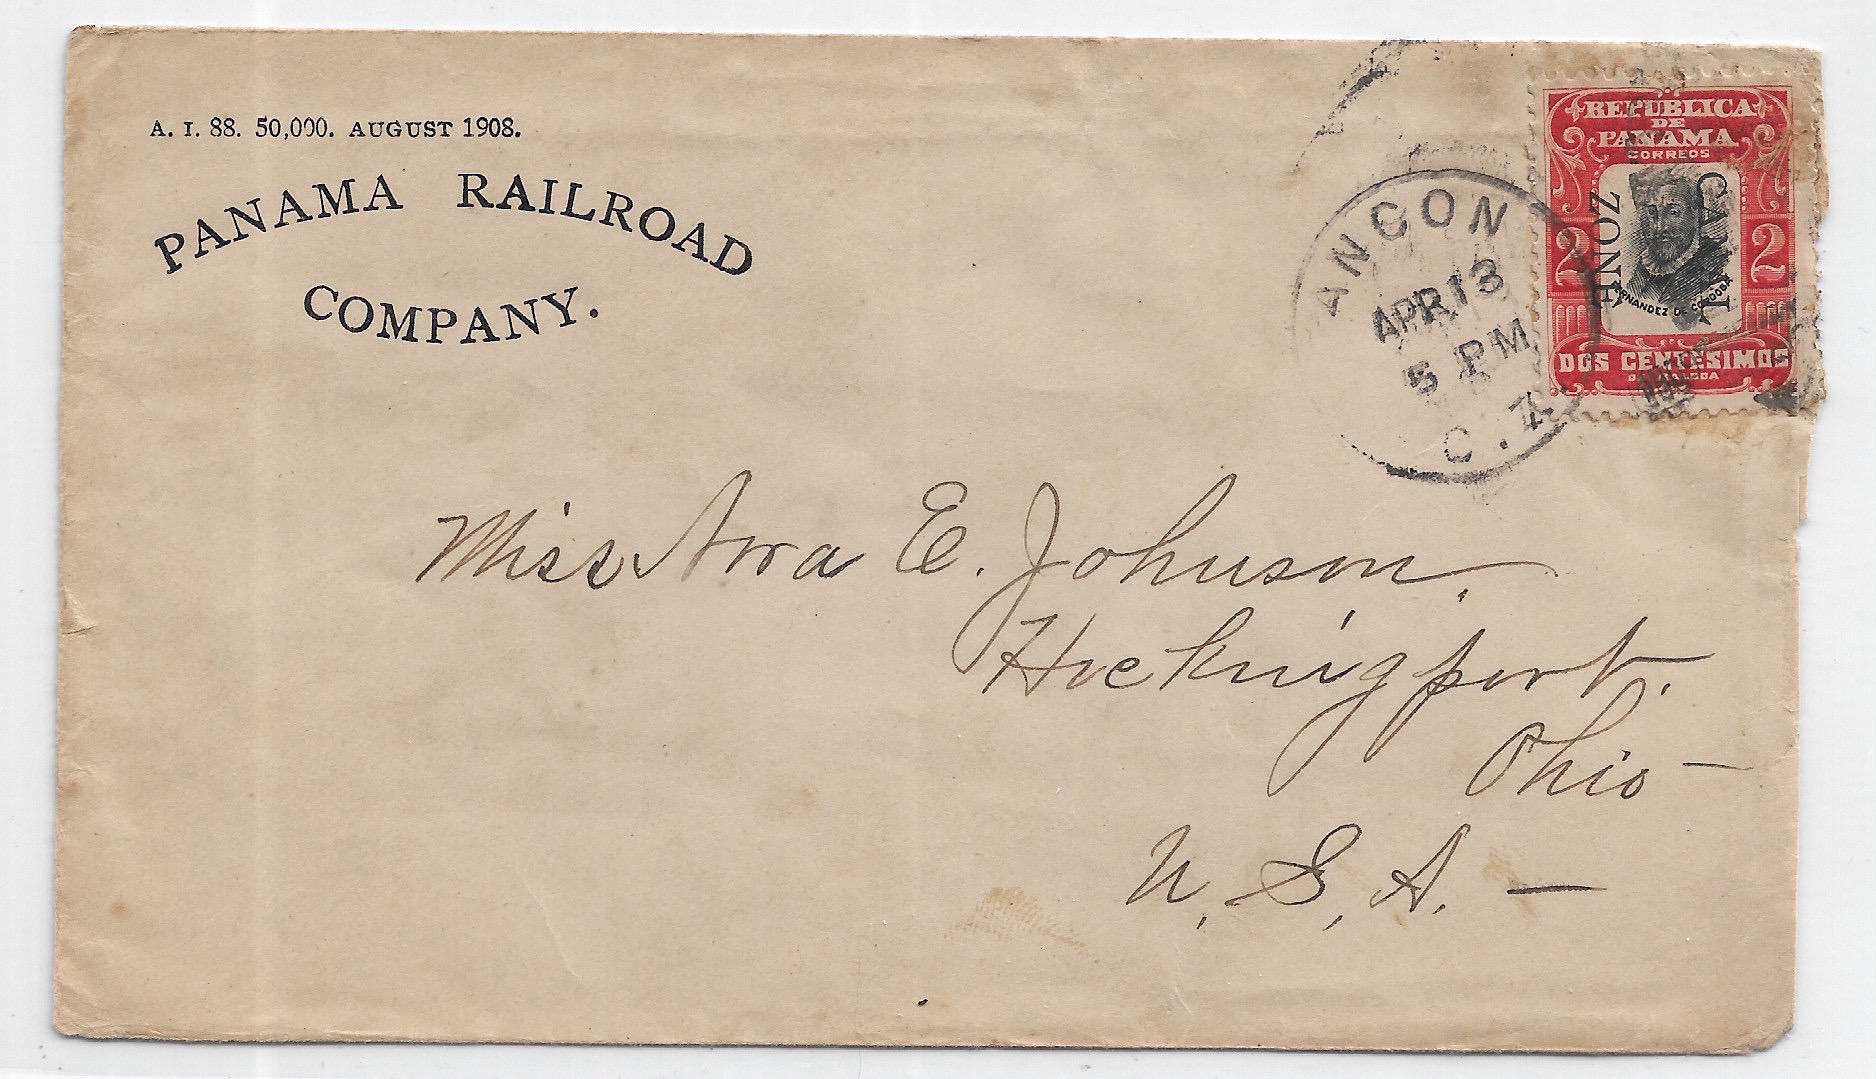 A. I. 88. 50,000. AUGUST 1908.
PANAMA RAILROAD
COMPANY.
ANCON
APR 13
5 PM
C. Z.
REPUBLICA
DE
PANAMA
CORREOS
CANAL
ZONE
2 2
FERNANDEZ DE CORDOBA
DOS CENTESIMOS
DE BALBOA
Miss Avra E. Johnson,
Hockingport.
Ohio —
U. S. A. —